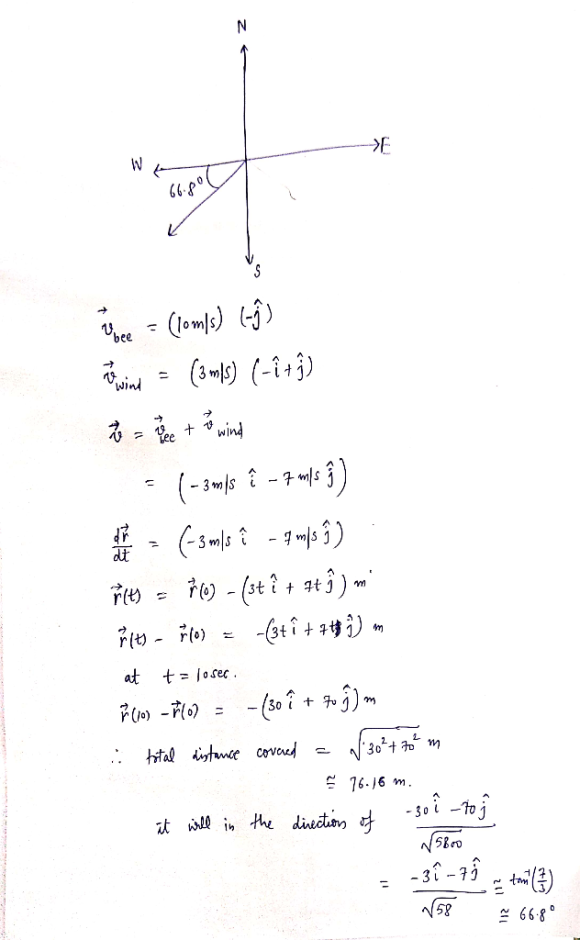 N
E
W
66.8°
S
v⃗bee = (10m/s) (-ĵ)
v⃗wind = (3m/s) (-î+ĵ)
v⃗ = v⃗bee + v⃗wind
= (-3m/s î - 7m/s ĵ)
dr⃗/dt = (-3m/s î - 7m/s ĵ)
r⃗(t) = r⃗(0) - (3t î + 7t ĵ) m
r⃗(t) - r⃗(0) = -(3t î + 7t ĵ) m
at t = 10sec.
r⃗(10) - r⃗(0) = -(30 î + 70 ĵ) m
∴ total distance covered = √30²+70² m
≅ 76.16 m.
it will in the direction of -30 î - 70 ĵ / √5800
= -3î - 7ĵ / √58 ≅ tan⁻¹(7/3)
≅ 66.8°